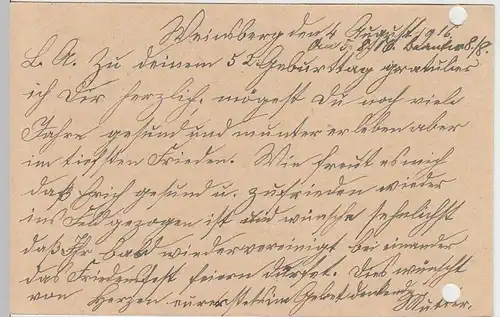 Weinsberg den 4 August 1916.
L. A. Zu deinem 52 Geburttag gratulier
ich Dir herzlich, mögest Du noch viele
Jahre gesund und munter erleben aber
im tiefsten Frieden. Wie freut es mich
daß Erich gesund u. zufrieden wieder
ins Feld gezogen ist und wünsche sehnlichst
daß Ihr bald wieder vereinigt bei einander
das Friedensfest feiern dürfet. Dies wünscht
von Herzen eure stets im Gebet denkende
Mutter.